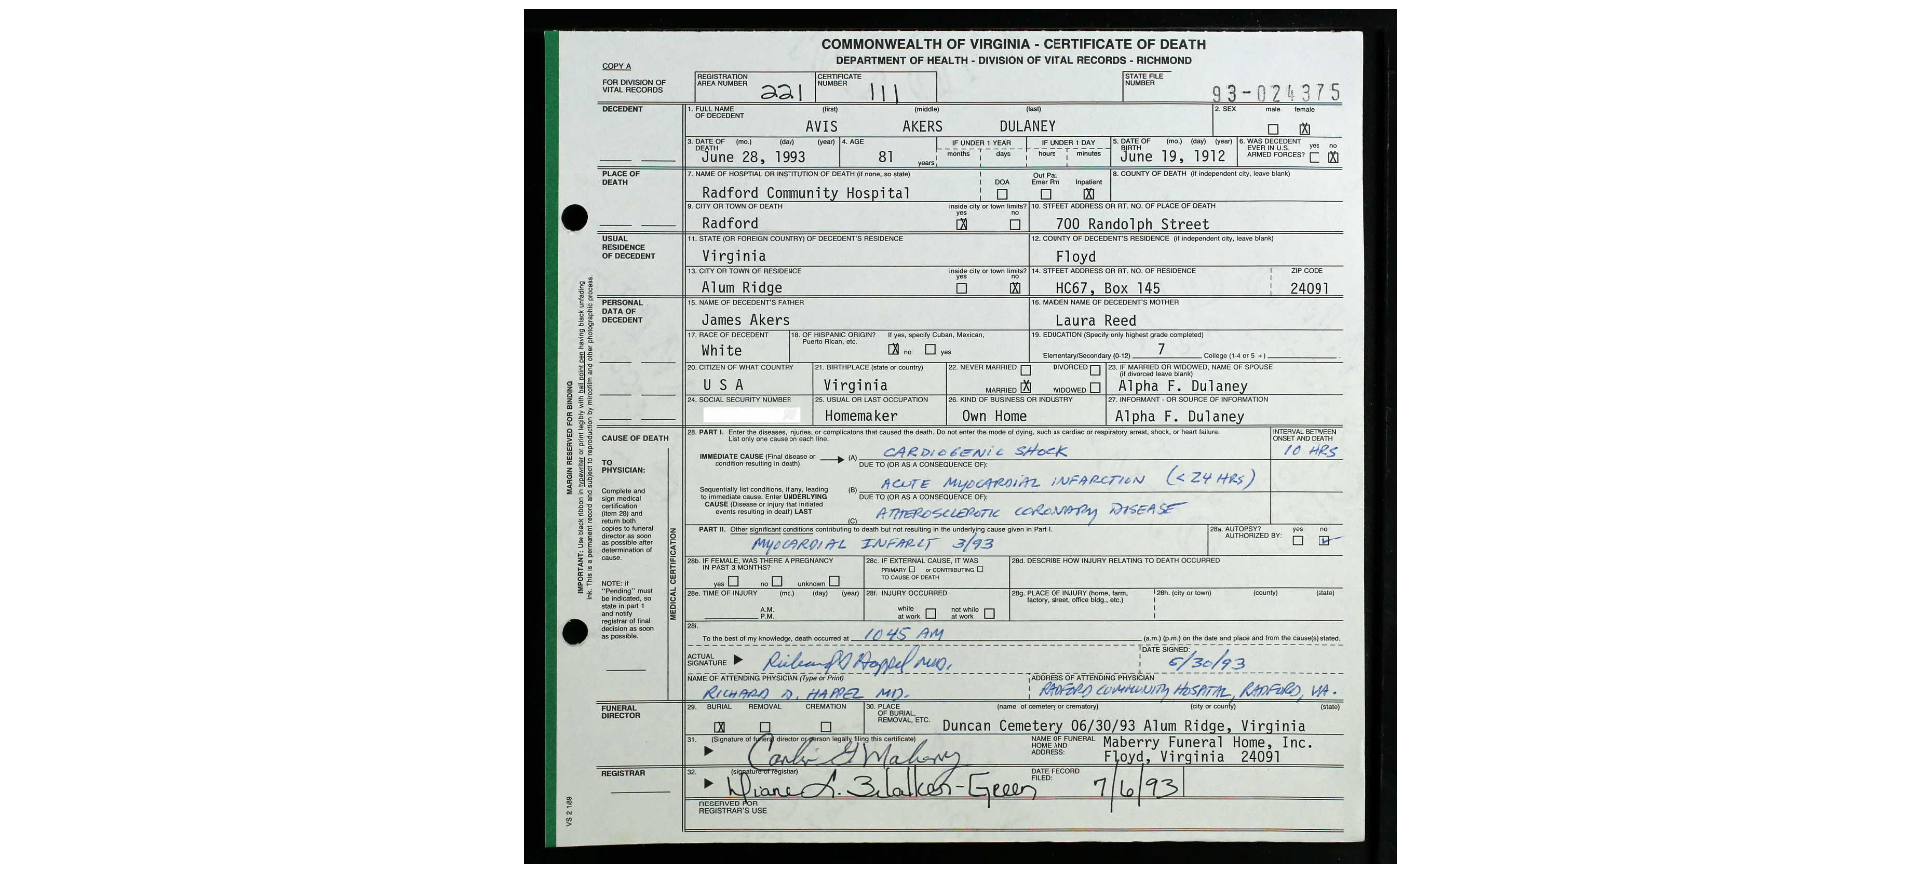 COMMONWEALTH OF VIRGINIA - CERTIFICATE OF DEATH
DEPARTMENT OF HEALTH - DIVISION OF VITAL RECORDS - RICHMOND
COPY A
FOR DIVISION OF VITAL RECORDS
REGISTRATION AREA NUMBER 221
CERTIFICATE NUMBER 111
STATE FILE NUMBER 93-024375
DECEDENT
1. FULL NAME OF DECEDENT (first) (middle) (last)
AVIS AKERS DULANEY
2. SEX male female X
3. DATE OF DEATH (mo.) (day) (year)
June 28, 1993
4. AGE 81 years
IF UNDER 1 YEAR months days
IF UNDER 1 DAY hours minutes
5. DATE OF BIRTH (mo.) (day) (year)
June 19, 1912
6. WAS DECEDENT EVER IN U.S. ARMED FORCES? yes no X
PLACE OF DEATH
7. NAME OF HOSPTIAL OR INSTITUTION OF DEATH (if none, so state)
Radford Community Hospital
DOA Out Pa. Emer Rm Inpatient X
8. COUNTY OF DEATH (if independent city, leave blank)
9. CITY OR TOWN OF DEATH
Radford
inside city or town limits? yes X no
10. STREET ADDRESS OR RT. NO. OF PLACE OF DEATH
700 Randolph Street
USUAL RESIDENCE OF DECEDENT
11. STATE (OR FOREIGN COUNTRY) OF DECEDENT'S RESIDENCE
Virginia
12. COUNTY OF DECEDENT'S RESIDENCE (if independent city, leave blank)
Floyd
13. CITY OR TOWN OF RESIDENCE
Alum Ridge
inside city or town limits? yes no X
14. STREET ADDRESS OR RT. NO. OF RESIDENCE
HC67, Box 145
ZIP CODE
24091
PERSONAL DATA OF DECEDENT
15. NAME OF DECEDENT'S FATHER
James Akers
16. MAIDEN NAME OF DECEDENT'S MOTHER
Laura Reed
17. RACE OF DECEDENT
White
18. OF HISPANIC ORIGIN? If yes, specify Cuban, Mexican, Puerto Rican, etc.
X no yes
19. EDUCATION (Specify only highest grade completed)
Elementary/Secondary (0-12) 7 College (1-4 or 5 +)
20. CITIZEN OF WHAT COUNTRY
U S A
21. BIRTHPLACE (state or country)
Virginia
22. NEVER MARRIED DIVORCED
MARRIED X WIDOWED
23. IF MARRIED OR WIDOWED, NAME OF SPOUSE (if divorced leave blank)
Alpha F. Dulaney
24. SOCIAL SECURITY NUMBER
25. USUAL OR LAST OCCUPATION
Homemaker
26. KIND OF BUSINESS OR INDUSTRY
Own Home
27. INFORMANT - OR SOURCE OF INFORMATION
Alpha F. Dulaney
CAUSE OF DEATH
TO PHYSICIAN:
Complete and sign medical certification (item 28) and return both copies to funeral director as soon as possible after determination of cause.
NOTE: if "Pending" must be indicated, so state in part 1 and notify registrar of final decision as soon as possible.
MEDICAL CERTIFICATION
28. PART I. Enter the diseases, injuries, or complicatons that caused the death. Do not enter the mode of dying, such as cardiac or respiratory arrest, shock, or heart failure.
List only one cause on each line.
INTERVAL BETWEEN ONSET AND DEATH
IMMEDIATE CAUSE (Final disease or condition resulting in death) (A) CARDIOGENIC SHOCK 10 HRS
DUE TO (OR AS A CONSEQUENCE OF):
Sequentially list conditions, if any, leading to immediate cause. Enter UNDERLYING CAUSE (Disease or injury that initiated events resulting in death) LAST
(B) ACUTE MYOCARDIAL INFARCTION (< 24 HRS)
DUE TO (OR AS A CONSEQUENCE OF):
(C) ATHEROSCLEROTIC CORONARY DISEASE
PART II. Other significant conditions contributing to death but not resulting in the underlying cause given in Part I.
MYOCARDIAL INFARCT 3/93
28a. AUTOPSY? AUTHORIZED BY: yes no
28b. IF FEMALE, WAS THERE A PREGNANCY IN PAST 3 MONTHS?
yes no unknown
28c. IF EXTERNAL CAUSE, IT WAS
PRIMARY or CONTRIBUTING
TO CAUSE OF DEATH
28d. DESCRIBE HOW INJURY RELATING TO DEATH OCCURRED
28e. TIME OF INJURY (mo.) (day) (year)
A.M.
P.M.
28f. INJURY OCCURRED
while at work not while at work
28g. PLACE OF INJURY (home, farm, factory, street, office bldg., etc.)
28h. (city or town) (county) (state)
28i.
To the best of my knowledge, death occurred at 1045 AM (a.m.) (p.m.) on the date and place and from the cause(s) stated.
ACTUAL SIGNATURE Richard D Happel MD.
DATE SIGNED: 6/30/93
NAME OF ATTENDING PHYSICIAN (Type or Print)
RICHARD D. HAPPEL MD.
ADDRESS OF ATTENDING PHYSICIAN
RADFORD COMMUNITY HOSPITAL, RADFORD, VA.
FUNERAL DIRECTOR
29. BURIAL X REMOVAL CREMATION
30. PLACE OF BURIAL, REMOVAL, ETC. (name of cemetery or crematory) (city or county) (state)
Duncan Cemetery 06/30/93 Alum Ridge, Virginia
31. (Signature of funeral director or person legally filing this certificate)
NAME OF FUNERAL HOME AND ADDRESS:
Maberry Funeral Home, Inc.
Floyd, Virginia 24091
REGISTRAR
32. (signature of registrar)
Diane L. Walker-Green
DATE RECORD FILED: 7/6/93
RESERVED FOR REGISTRAR'S USE
MARGIN RESERVED FOR BINDING
IMPORTANT: Use black ribbon in typewriter or print legibly with ball point pen having black unfading
ink. This is a permanent record and subject to reproduction by microfilm and other photographic process.
VS 2 1/89